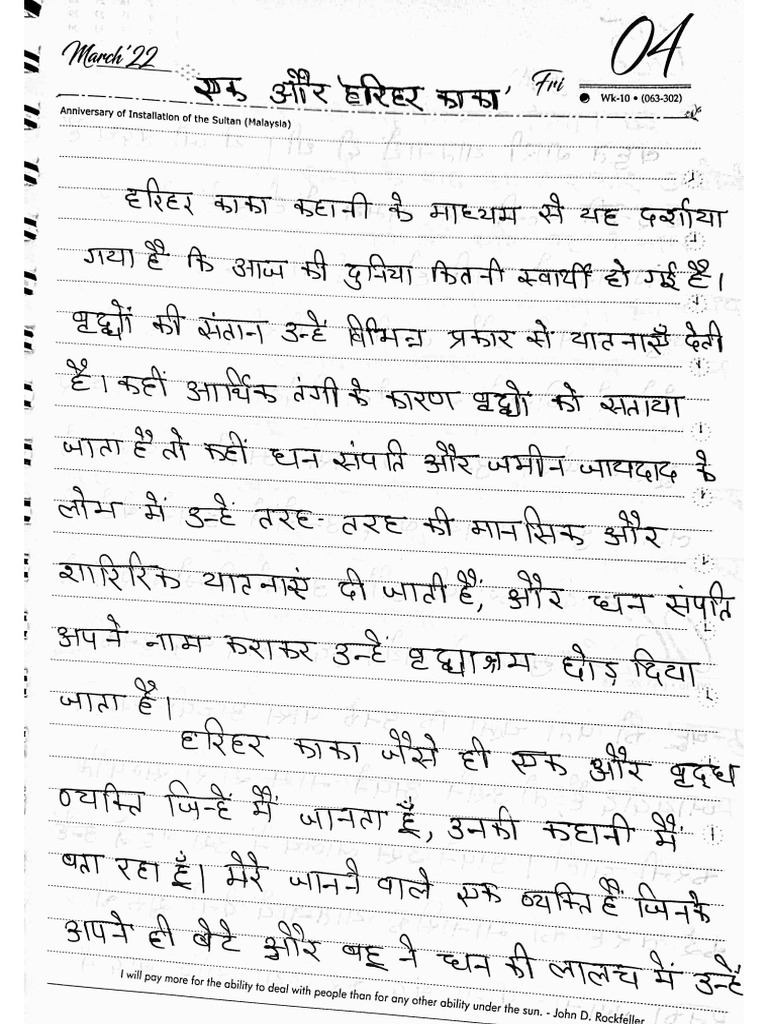 March'22
04
एक और 'हरिहर काका'
Fri
Wk-10 • (063-302)
Anniversary of Installation of the Sultan (Malaysia)
हरिहर काका कहानी के माध्यम से यह दर्शाया
गया है कि आज की दुनिया कितनी स्वार्थी हो गई है।
वृद्धों की संतान उन्हें विभिन्न प्रकार से यातनाएँ देती
है। कहीं आर्थिक तंगी के कारण वृद्धों को सताया
जाता है तो कहीं धन संपति और जमीन जायदाद के
लोभ में उन्हें तरह-तरह की मानसिक और
शारिरिक यातनाएं दी जाती हैं, और धन संपति
अपने नाम कराकर उन्हें वृद्धाश्रम छोड़ दिया
जाता है।
हरिहर काका जैसे ही एक और वृद्ध
व्यक्ति जिन्हें मैं जानता हूँ, उनकी कहानी मैं
बता रहा हूँ। मेरे जानने वाले एक व्यक्ति हैं जिनके
अपने ही बेटे और बहू ने धन की लालच में उन्हें
I will pay more for the ability to deal with people than for any other ability under the sun. - John D. Rockfeller